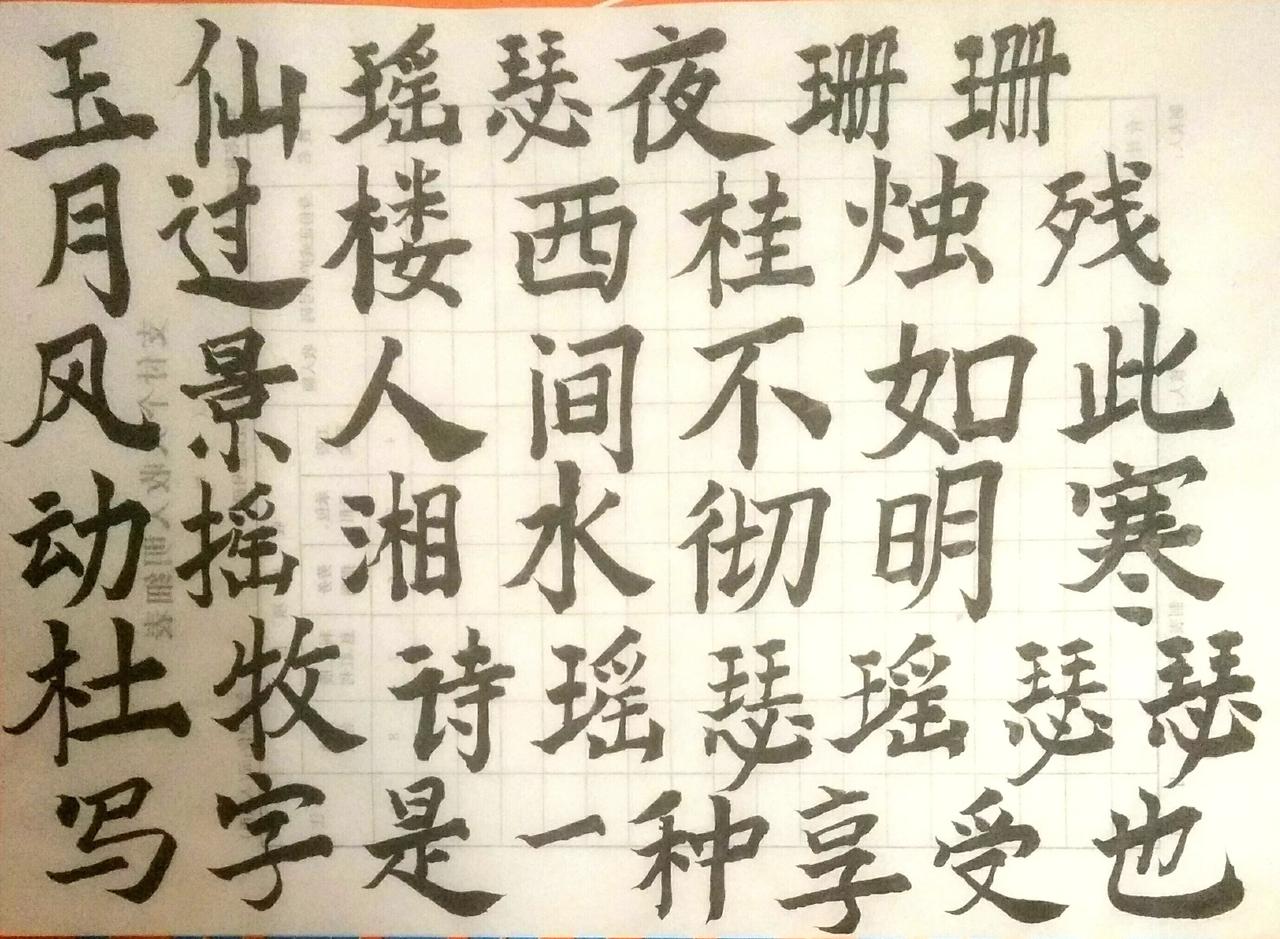 玉仙瑶瑟夜珊珊
月过楼西桂烛残
风景人间不如此
动摇湘水彻明寒
杜牧诗瑶瑟瑶瑟瑟
写字是一种享受也